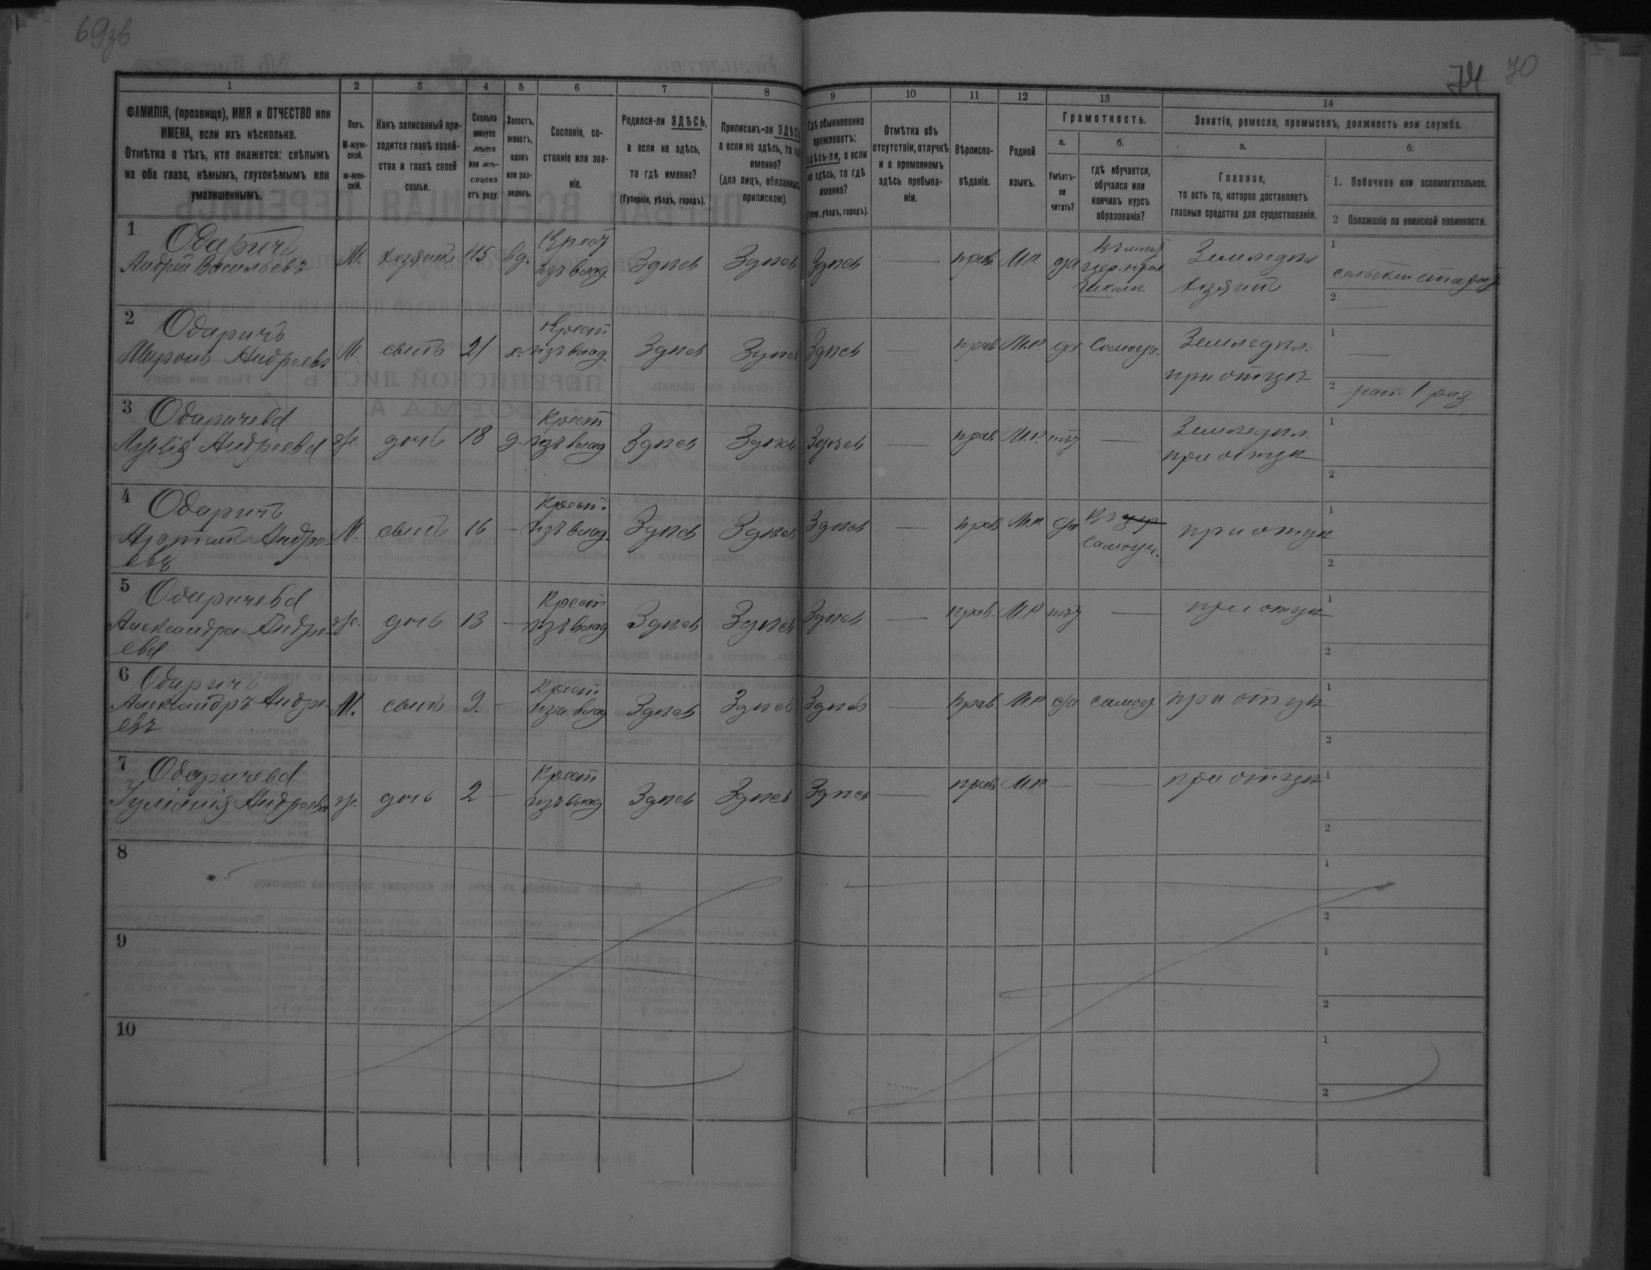 69зв
74 70
1 2 3 4 5 6 7 8 9 10 11 12 13 14
ФАМИЛІЯ, (прозвище), ИМЯ и ОТЧЕСТВО или
ИМЕНА, если ихъ нѣсколько.
Отмѣтка о тѣхъ, кто окажется: слѣпымъ
на оба глаза, нѣмымъ, глухонѣмымъ или
умалишеннымъ.
Полъ.
М-муж-
ской.
ж-жен-
скій.
Какъ записанный при-
ходится главѣ хозяй-
ства и главѣ своей
семьи.
Сколько
минуло
лѣтъ
или мѣ-
сяцевъ
отъ роду.
Холостъ,
женатъ,
вдовъ
или раз-
веденъ.
Сословіе, со-
стояніе или зва-
ніе.
Родился-ли ЗДѢСЬ,
а если не здѣсь,
то гдѣ именно?
(Губернія, уѣздъ, городъ).
Приписанъ-ли ЗДѢСЬ
а если не здѣсь, то гдѣ
именно?
(для лицъ, обязанныхъ
припискою).
Гдѣ обыкновенно
проживаетъ:
здѣсь-ли, а если
не здѣсь, то гдѣ
именно?
(Губер., уѣздъ, городъ).
Отмѣтка объ
отсутствіи, отлучкѣ
и о временномъ
здѣсь пребыва-
ніи.
Вѣроиспо-
вѣданіе.
Родной
языкъ.
Грамотность.
а.
Умѣетъ-
ли
читать?
б.
гдѣ обучается,
обучался или
кончилъ курсъ
образованія?
Занятіе, ремесло, промыселъ, должность или служба.
а.
Главное,
то есть то, которое доставляетъ
главныя средства для существованія.
б.
1. Побочное или вспомогательное.
2 Положеніе по воинской повинности.
1 Одаричъ
Андрей Васильевъ М. хозяинъ 45 вд. Крест изъ влад. Здѣсь Здѣсь Здѣсь — прав. М.Р. да школѣ Земледѣл. хозяинъ
1 сельскій староста
2 —
2 Одаричъ
Миронъ Андреевъ М. сынъ 21 х. Крест изъ влад. Здѣсь Здѣсь Здѣсь — прав. М.Р. да Самоуч. Земледѣл. при отцѣ
1 —
2 рат. 1 раз
3 Одаричева
Андреева ж. дочь 18 д. Крест изъ влад. Здѣсь Здѣсь Здѣсь — прав. М.Р. нѣт — Земледѣл. при отцѣ
1
2
4 Одаричъ
Андре-
евъ М. сынъ 16 — Крест. изъ влад. Здѣсь Здѣсь Здѣсь — прав. М.Р. да самоуч. при отцѣ
1
2
5 Одаричева
Александра Андре-
ева ж. дочь 13 — Крест изъ влад. Здѣсь Здѣсь Здѣсь — прав. М.Р. нѣт — при отцѣ
1
2
6 Одаричъ
Александръ Андре-
евъ М. сынъ 9. Крест изъ влад Здѣсь Здѣсь Здѣсь — прав. М.Р. да самоу. при отцѣ
1
2
7 Одаричева
Іуліанія Андреева ж. дочь 2 — Крест изъ влад. Здѣсь Здѣсь Здѣсь — прав. М.Р. — — при отцѣ
1
2
8
1
2
9
1
2
10
1
2